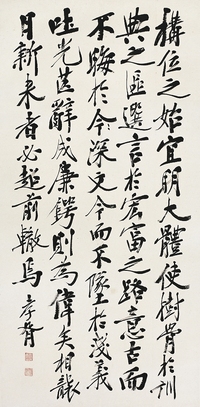 構位之始宜明大體使樹骨於訓
典之區選言於宏富之路意古而
不晦於今深文今而不墜於淺義
吐光芒辭成廉鍔則為偉矣相襲
日新來者必超前轍焉 孝胥